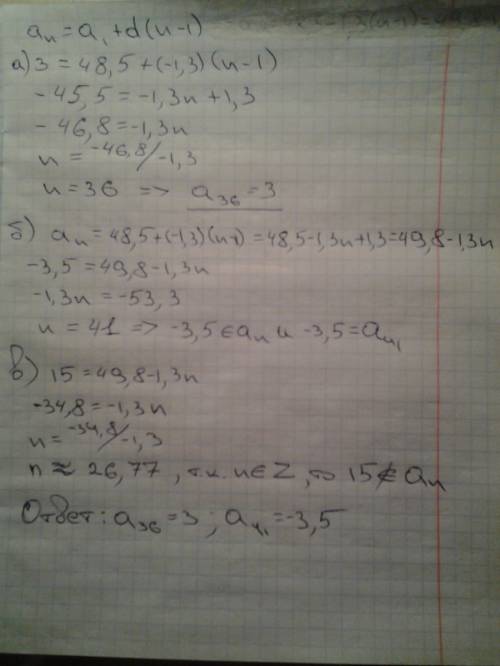 aₙ=a₁+d(n-1)
а) 3=48,5+(-1,3)(n-1)
-45,5=-1,3n+1,3
-46,8=-1,3n
n=-46,8/-1,3
n=36 => a₃₆=3
б) aₙ=48,5+(-1,3)(n-1)=48,5-1,3n+1,3=49,8-1,3n
-3,5=49,8-1,3n
-1,3n=-53,3
n=41 => -3,5∈aₙ и -3,5=a₄₁
в) 15=49,8-1,3n
-34,8=-1,3n
n=-34,8/-1,3
n≈26,77, т.к. n∈Z, то 15∉aₙ
Ответ: a₃₆=3; a₄₁=-3,5